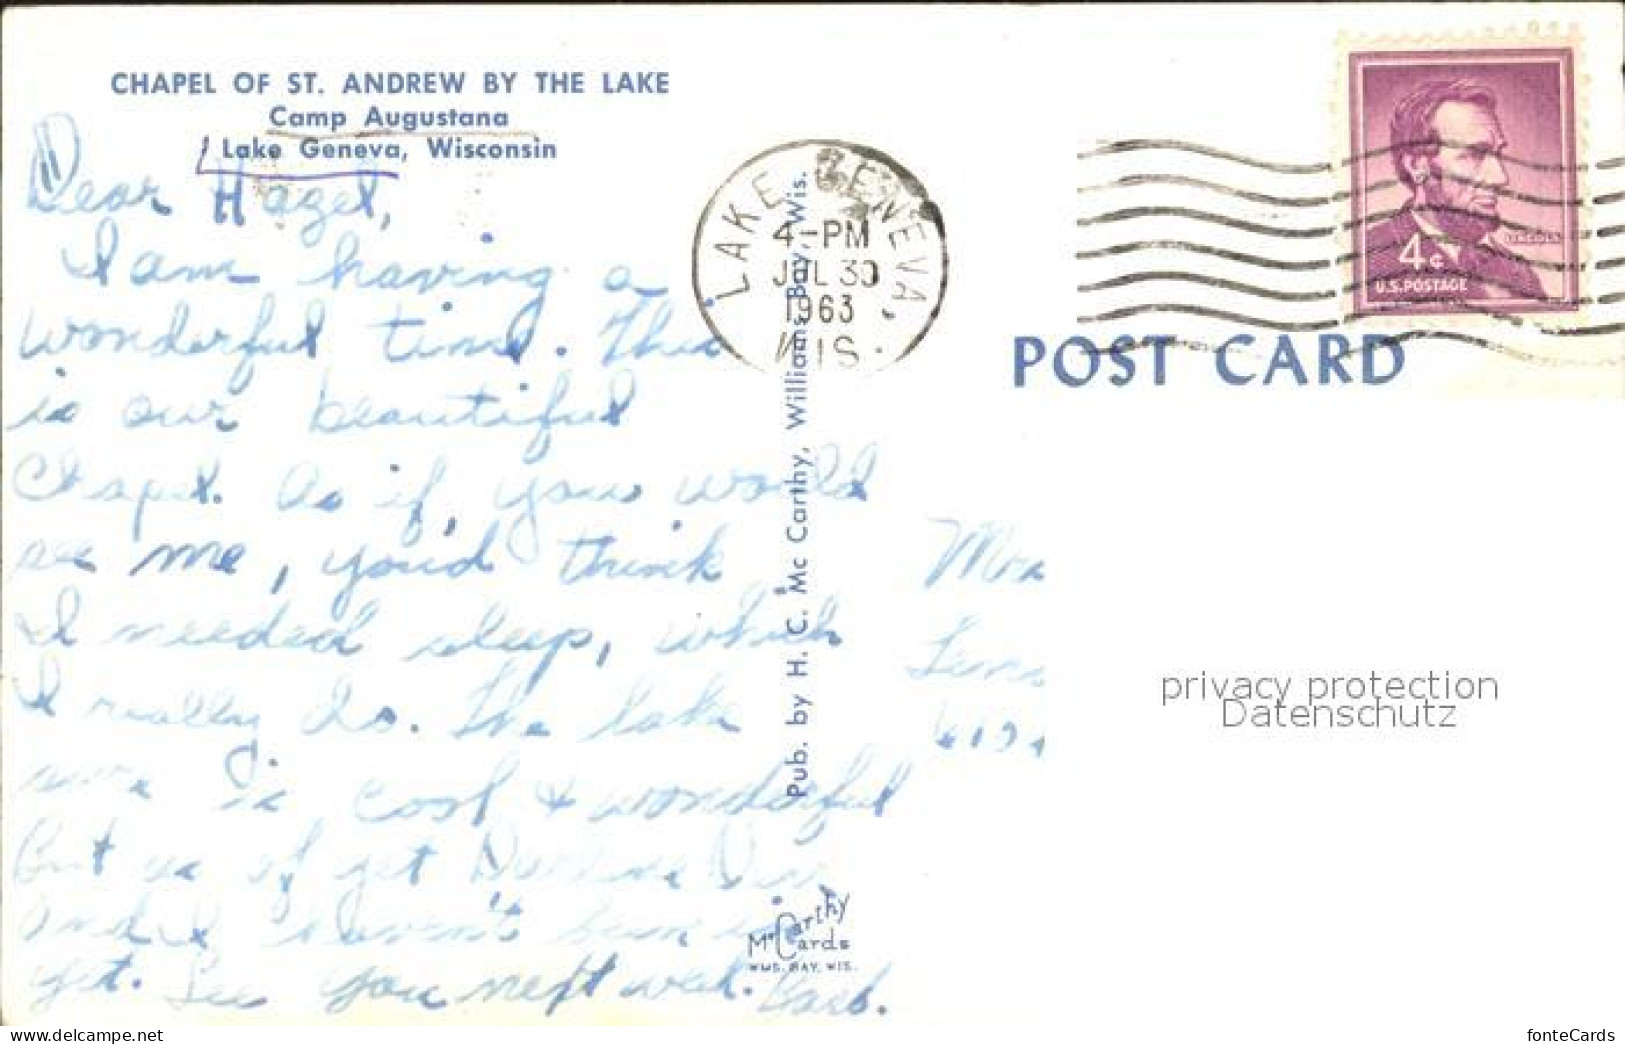 CHAPEL OF ST. ANDREW BY THE LAKE
Camp Augustana
Lake Geneva, Wisconsin
Dear Hazel,
I am having a
wonderful time. This
is our beautiful
Chapel. As if, you would
see me, you'd think
I needed sleep, which
I really do. The lake
sure is cool & wonderful
But as of yet Darlene
and I haven't been in
yet. See you next week. Barb.
Pub. by H. C. Mc Carthy, Williams Bay, Wis.
McCarthy
Cards
WMS. BAY, WIS.
LAKE GENEVA,
4-PM
JUL 30
1963
WIS.
LINCOLN
4¢
U.S. POSTAGE
POST CARD
privacy protection
Datenschutz
www.delcampe.net
fonteCards